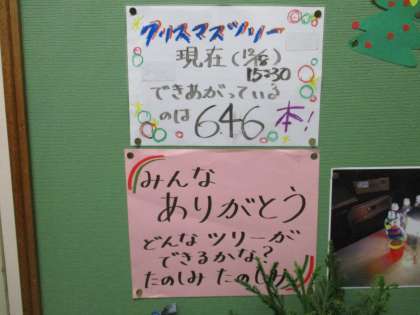 クリスマスツリー
現在(12/18)
15:30
できあがっている
のは 646 本!
みんな
ありがとう
どんな ツリーが
できるかな?
たのしみ たのしみ